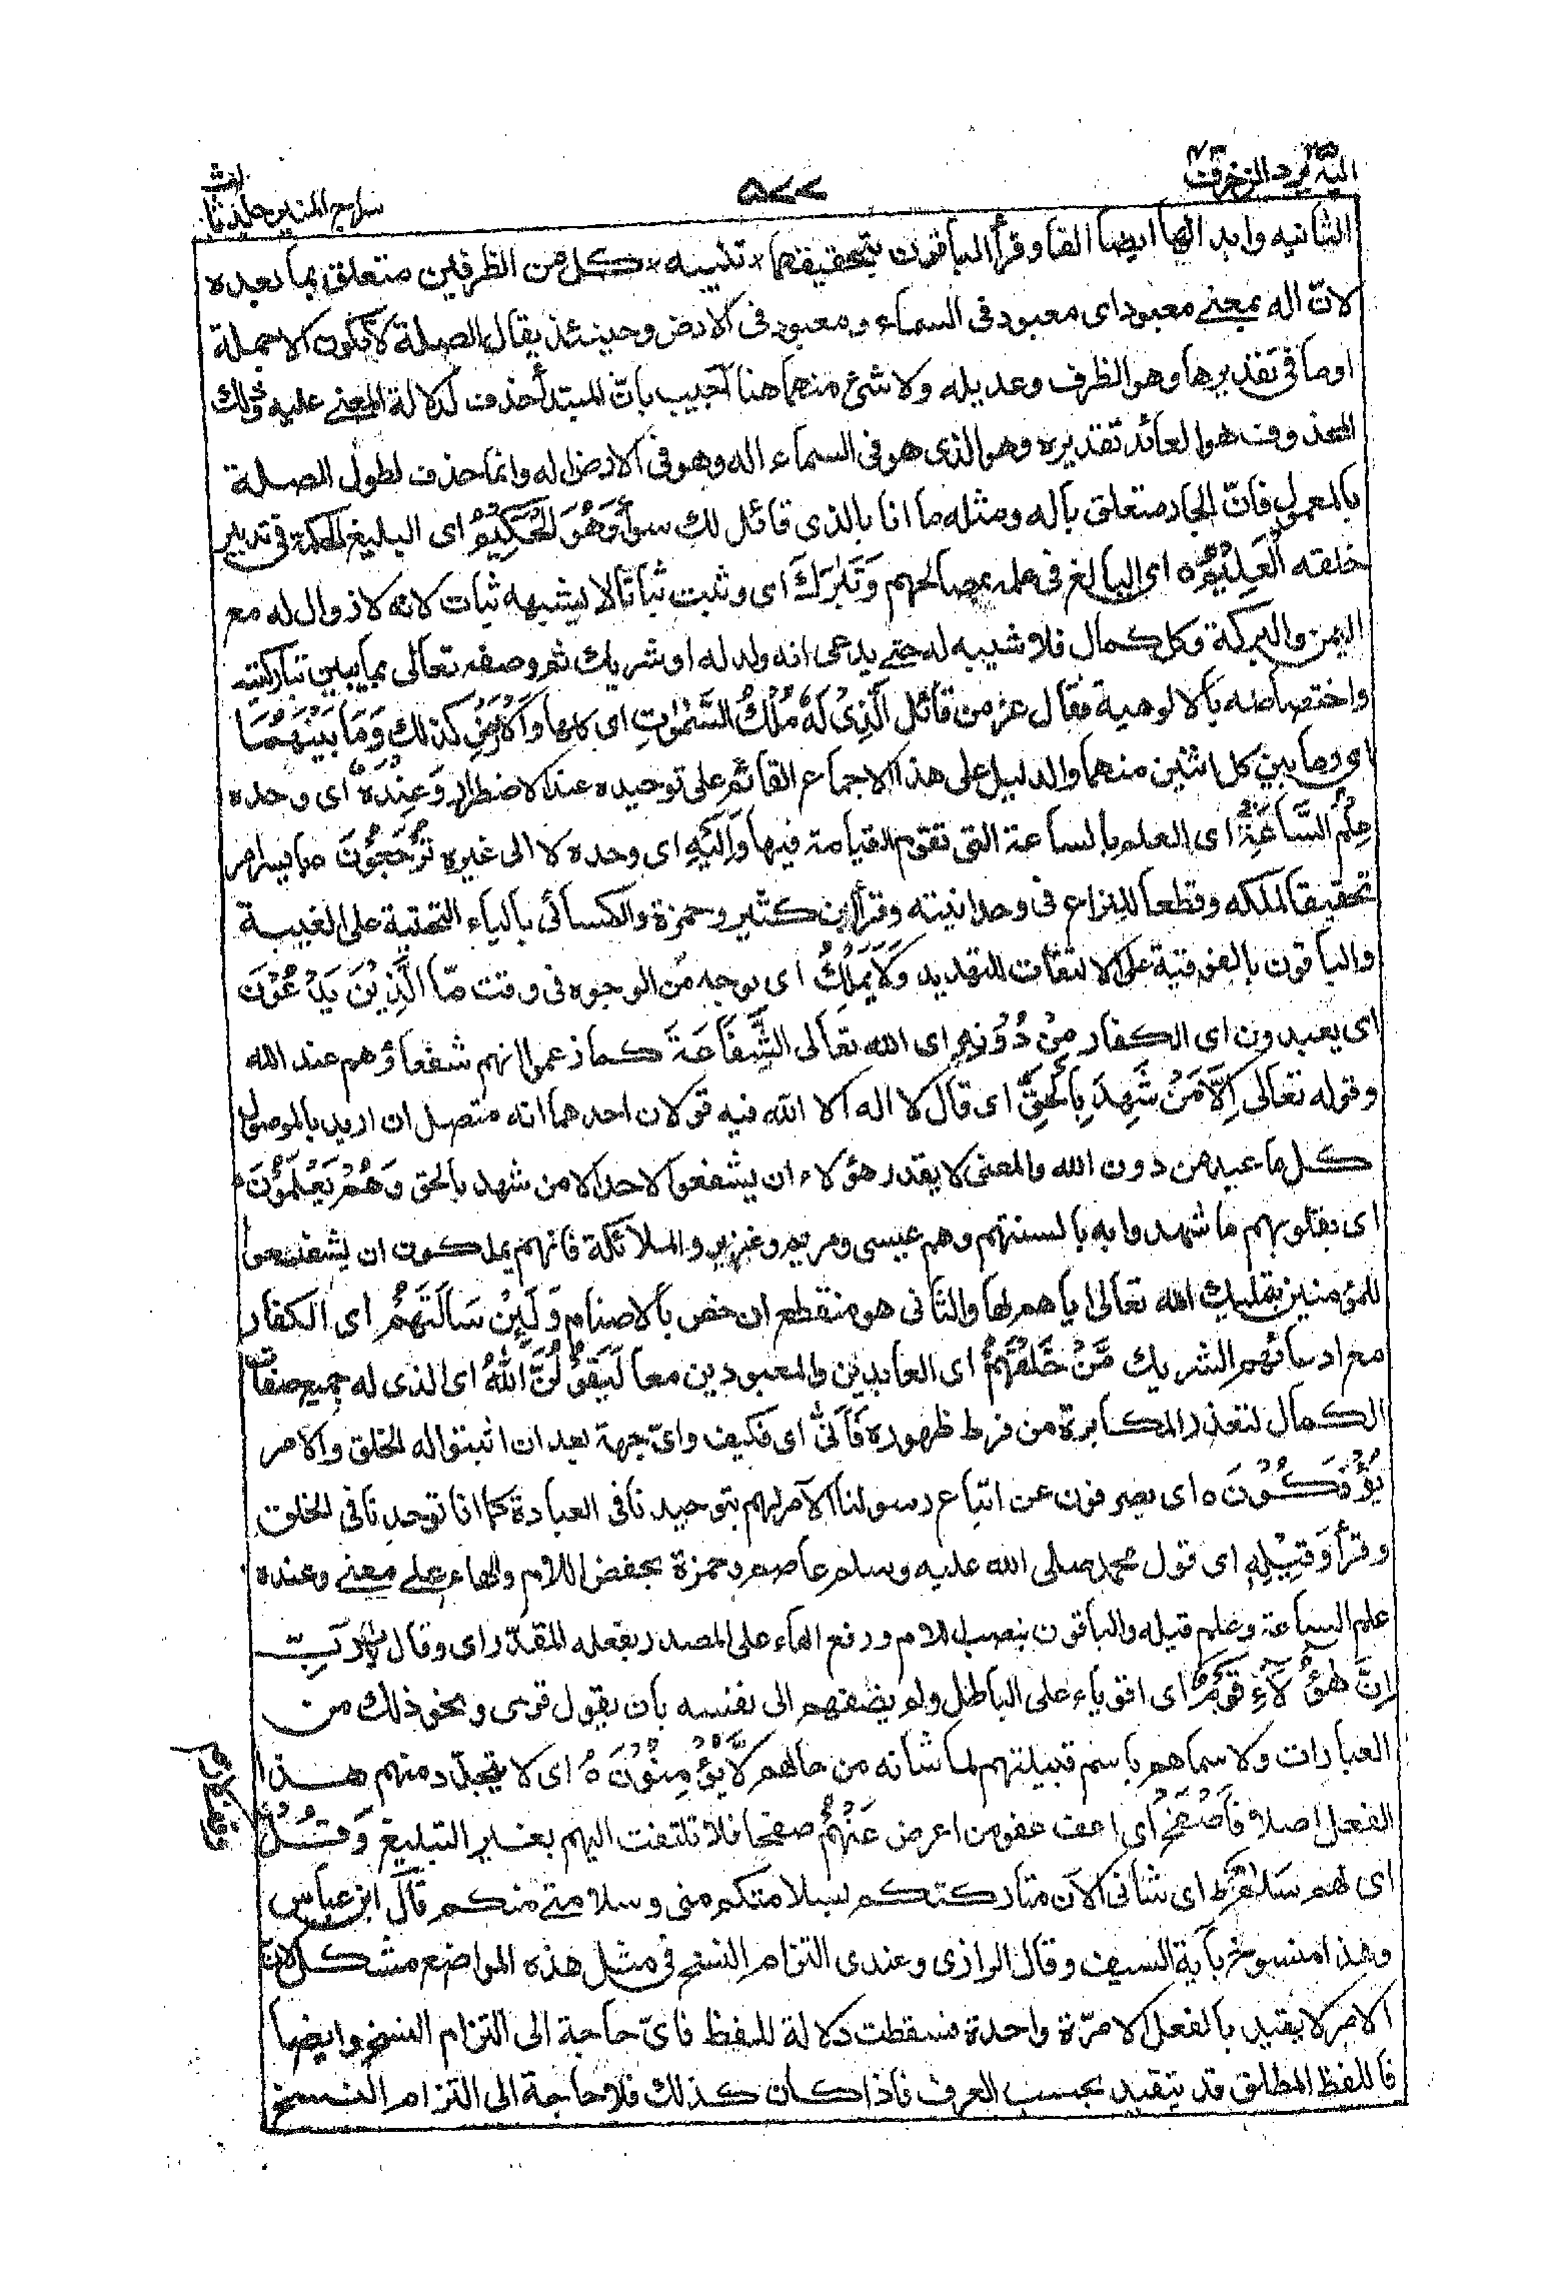 اليه يرد الزخرف
٥٧٧
سراج المنير جلد ثالث
الثانيه وابدالها ايضا الفا وقرأ الباقون بتحقيقهما * تنبيه * كل من الظرفين متعلق بما بعده
لان اله بمعنى معبود اى معبود فى السماء ومعبود فى الارض وحينئذ يقال الصلة لا تكون الا جملة
اوما فى تقديرها وهو الظرف وعديله ولا شئ منهما هنا اجيب بانّ المبتدأ حذف لدلالة المعنى عليه وذلك
المحذوف هو العائد تقديره وهو الذى هو فى السماء اله وهو فى الارض اله وانما حذف لطول الصلة
بالمعمول فانّ الجار متعلق باله ومثله ما انا بالذى قائل لك سوأ وَهُوَ الْحَكِيْمُ اى البليغ الحكمة فى تدبير
خلقه الْعَلِيْمُ ه اى البالغ فى علمه بمصالحهم وَتَبٰرَكَ اى وثبت ثباتا لا يشبهه ثبات لانه لا زوال له مع
اليمن والبركة وكل كمال فلا شبيه له حتى يدعى انه ولد له او شريك ثم وصفه تعالى بما يبين تباركه
واختصاصه بالالوهية فقال عز من قائل الَّذِىْ لَهٗ مُلْكُ السَّمٰوٰتِ اى كلها وَالْاَرْضِ كذلك وَمَا بَيْنَهُمَا
اى وما بين كل اثنين منهما والدليل على هذا الاجماع القائم على توحيده عند الاضطرار وَعِنْدَهٗ اى وحده
عِلْمُ السَّاعَةِ اى العلم بالساعة التى تقوم القيامة فيها وَاِلَيْهِ اى وحده لا الى غيره تُرْجَعُوْنَ بايسر امر
تحقيقا لملكه وقطعا للنزاع فى وحدانيته وقرأ ابن كثير وحمزة والكسائى بالياء التحتية على الغيبة
والباقون بالفوقية على الالتفات للتهديد وَلَا يَمْلِكُ اى بوجه من الوجوه فى وقت مّا الَّذِيْنَ يَدْعُوْنَ
اى يعبدون اى الكفار مِنْ دُوْنِهِ اى الله تعالى الشَّفَاعَةَ كما زعموا انهم شفعاؤهم عند الله
وقوله تعالى اِلَّا مَنْ شَهِدَ بِالْحَقِّ اى قال لا اله الا الله فيه قولان احدهما انه متصل ان اريد بالموصول
كل ما عبد من دون الله والمعنى لا يقدر هؤلاء ان يشفعوا لاحد الا من شهد بالحق وَهُمْ يَعْلَمُوْنَ ه
اى بقلوبهم ما شهدوا به بالسنتهم وهم عيسى ومريم وعزير والملائكة فانهم يملكون ان يشفعوا
للمؤمنين بتمليك الله تعالى اياهم لها والثانى هو منقطع ان خص بالاصنام وَلَئِنْ سَاَلْتَهُمْ اى الكفار
مع ادعائهم الشريك مَّنْ خَلَقَهُمْ اى العابدين والمعبودين معا لَيَقُوْلُنَّ اللّٰهُ اى الذى له جميع صفات
الكمال لتعذر المكابرة من فرط ظهوره فَاَنّٰى اى فكيف واىّ جهة بعد ان اثبتوا له الخلق والامر
يُؤْفَكُوْنَ ه اى يصرفون عن اتباع رسولنا الآمر لهم بتوحيدنا فى العبادة كما انا توحدنا فى الخلق
وقرأ وَقِيْلِهٖ اى قول محمد صلى الله عليه وسلم عاصم وحمزة بخفض اللام والهاء على معنى وعنده
علم الساعة وعلم قيله والباقون بنصب اللام ورفع الهاء على المصدر بفعله المقدّر اى وقال يٰرَبِّ
اِنَّ هٰؤُلَآءِ قَوْمٌ اى اقوياء على الباطل ولم يضفهم الى نفسه بان يقول قومى ونحو ذلك من
العبارات ولا سماهم باسم قبيلتهم لما شانه من حالهم لَّا يُؤْمِنُوْنَ ه اى لا يتجدّد منهم هذا
الفعل اصلا فَاصْفَحْ اى اعف عفو من اعرض عَنْهُمْ صفحا فلا تلتفت اليهم بغير التبليغ وَقُلْ
اى لهم سَلٰمٌ ط اى شانى الآن متاركتكم بسلامتكم منى وسلامتى منكم قال ابن عباس
وهذا منسوخ بآية السيف وقال الرازى وعندى التزام النسخ فى مثل هذه المواضع مشكل لانّ
الامر لا يفيد بالفعل الا مرّة واحدة فسقطت دلالة اللفظ فاىّ حاجة الى التزام النسخ وايضا
فاللفظ المطلق قد يتقيد بحسب العرف فاذا كان كذلك فلا حاجة الى التزام النسخ